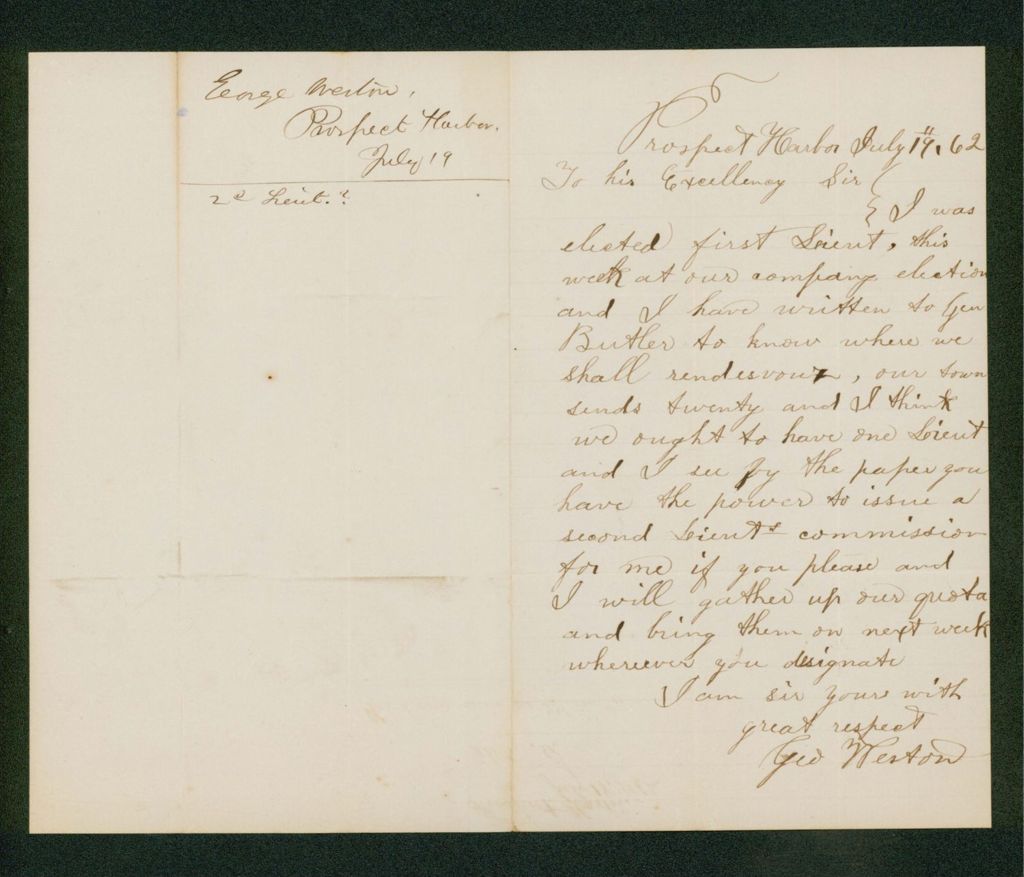 George Weston,
Prospect Harbor.
July 19
2d Lieut.?
Prospect Harbor July 19th, 62
To his Excellency Sir
I was
elected first Leient, this
week at our company election
and I have written to Gen
Butler to know where we
shall rendesvouz, our town
sends twenty and I think
we ought to have one Leient
and I see by the paper you
have the power to issue a
second Leients commission
for me if you please and
I will gather up our quota
and bring them on next week
whereever you designate
I am sir yours with
great respect
Geo Weston